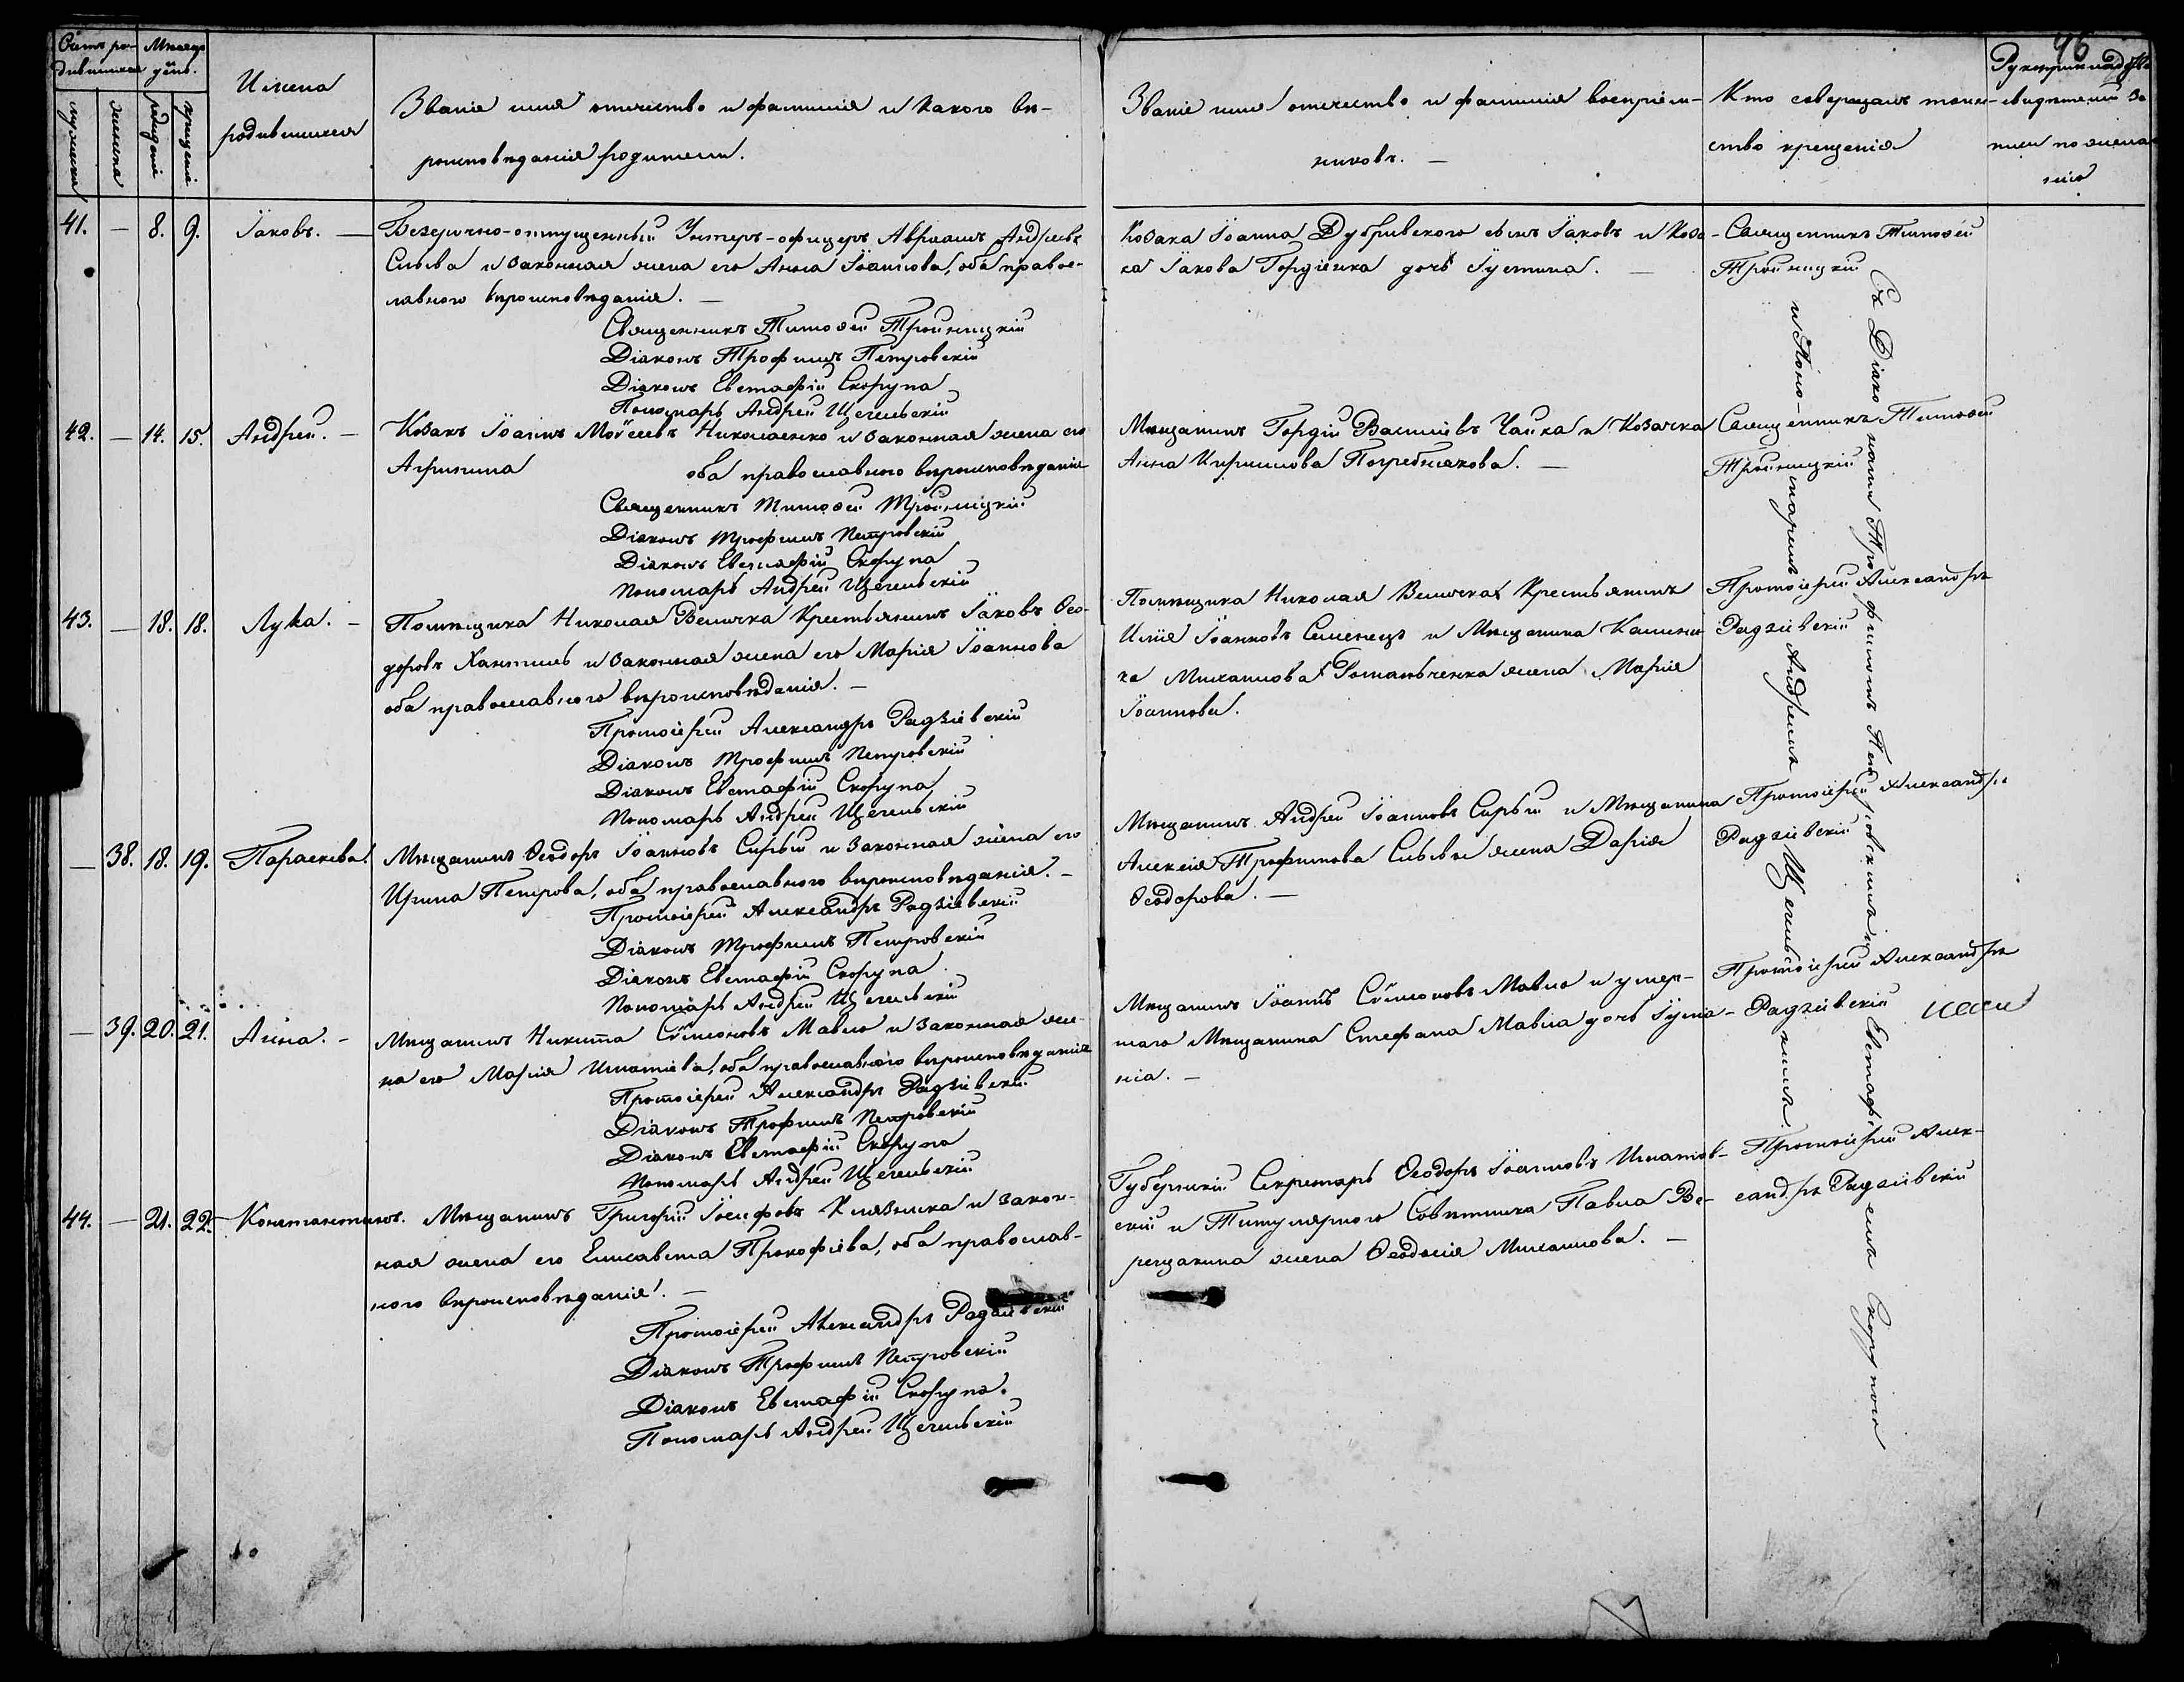 46
Счетъ ро-
дившихся
Мѣсяцъ
день.
мужеска
женска
рожденія
крещенія
Имена
родившихся
Званіе имя отчество и фамилія и какого вѣ-
роисповѣданія родители.
Званіе имя отчество и фамилія воспріем-
никовъ. —
Кто совершалъ таин-
ство крещенія
Рукоприкладство
свидѣтелей за-
писи по жела-
нію
41. — 8. 9. Іаковъ. —
Безсрочно-отпущенный Унтеръ-офицеръ Авраамъ Андреевъ
и законная жена его Анна Іоаннова, оба право-
славного вѣроисповѣданія. —
Священникъ Тимоѳей Тройницкій
Діаконъ Трофимъ Петровскій
Діаконъ Евстафій Скорупа
Пономарь Андрей Щегельскій
Козака Іоанна Дубривского сынъ Іаковъ и Коза-
ка Іакова Гордіенка дочь Іустина. —
Священникъ Тимоѳей
Тройницкій
42. — 14. 15. Андрей. —
Козакъ Іоаннъ Моѵсеевъ Николаенко и законная жена его
Агрипина оба православного вѣроисповѣданія
Священникъ Тимоѳей Тройницкій
Діаконъ Трофимъ Петровскій
Діаконъ Евстафій Скорупа
Пономарь Андрей Щегельскій
Мѣщанинъ Гордій Василіевъ Чайка и Козачка
Анна Кириллова Погребнякова. —
Священникъ Тимоѳей
Тройницкій
43. — 18. 18. Лука. —
Помѣщика Николая Велички Крестьянинъ Іаковъ Ѳео-
доровъ и законная жена его Марія Іоаннова
оба православного вѣроисповѣданія. —
Протоіерей Александръ Радзіевскій
Діаконъ Трофимъ Петровскій
Діаконъ Евстафій Скорупа
Пономарь Андрей Щегельскій
Помѣщика Николая Велички Крестьянинъ
Илія Іоанновъ Семенецъ и Мѣщанина
Михаилова Романченка жена Марія
Іоаннова.
Протоіерей Александръ
Радзіевскій
— 38. 18. 19. Параскева.
Мѣщанинъ Ѳеодоръ Іоанновъ Сирый и законная жена его
Ирина Петрова, оба православного вѣроисповѣданія. —
Протоіерей Александръ Радзіевскій
Діаконъ Трофимъ Петровскій
Діаконъ Евстафій Скорупа
Пономарь Андрей Щегельскій
Мѣщанинъ Андрей Іоанновъ Сирый и Мѣщанина
Алексія Трофимова жена Дарія
Ѳеодорова. —
Протоіерей Александръ
Радзіевскій
— 39. 20. 21. Анна. —
Мѣщанинъ Никита Сѵмеоновъ Мавло и законная же-
на его Марія Игнатіева, оба православного вѣроисповѣданія
Протоіерей Александръ Радзіевскій
Діаконъ Трофимъ Петровскій
Діаконъ Евстафій Скорупа
Пономарь Андрей Щегельскій
Мѣщанинъ Іоаннъ Сѵмеоновъ Мавло и умер-
шаго Мѣщанина Стефана Мавла дочь
нія. —
Протоіерей Александръ
Радзіевскій
44. — 21. 22. Константинъ.
Мѣщанинъ Григорій Іосифовъ и закон-
ная жена его Елисавета Прокофіева, оба православ-
ного вѣроисповѣданія. —
Протоіерей Александръ Радзіевскій
Діаконъ Трофимъ Петровскій
Діаконъ Евстафій Скорупа.
Пономарь Андрей Щегельскій
Губернскій Секретарь Ѳеодоръ Іоанновъ Игнатов-
скій и Титулярного Совѣтника Павла Ве-
рещакина жена Ѳеодосія Михаилова. —
Протоіерей Алек-
сандръ Радзіевскій
Съ Діаконами Трофимомъ Петровскимъ и Евстафіемъ Скорупою
и Пономаремъ Андреемъ Щегельскимъ